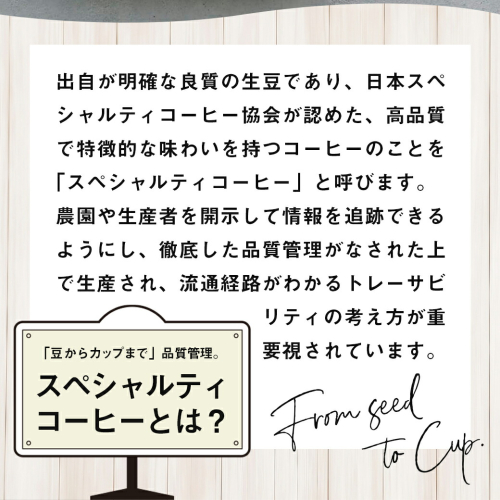 出自が明確な良質の生豆であり、日本スペ
シャルティコーヒー協会が認めた、高品質
で特徴的な味わいを持つコーヒーのことを
「スペシャルティコーヒー」と呼びます。
農園や生産者を開示して情報を追跡できる
ようにし、徹底した品質管理がなされた上
で生産され、流通経路がわかるトレーサビ
リティの考え方が重
要視されています。
「豆からカップまで」品質管理。
スペシャルティ
コーヒーとは？
From seed
to Cup.